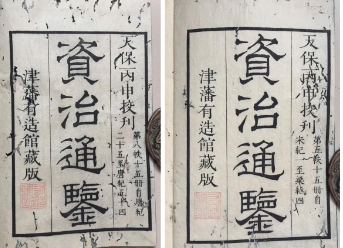 天保丙申挍刊
第八帙十五册自唐紀
二十五至唐紀五十四
資治通鑒
津藩有造館藏版
天保丙申挍刊
第五帙十五册自
宋紀一至梁紀四
資治通鑒
津藩有造館藏版